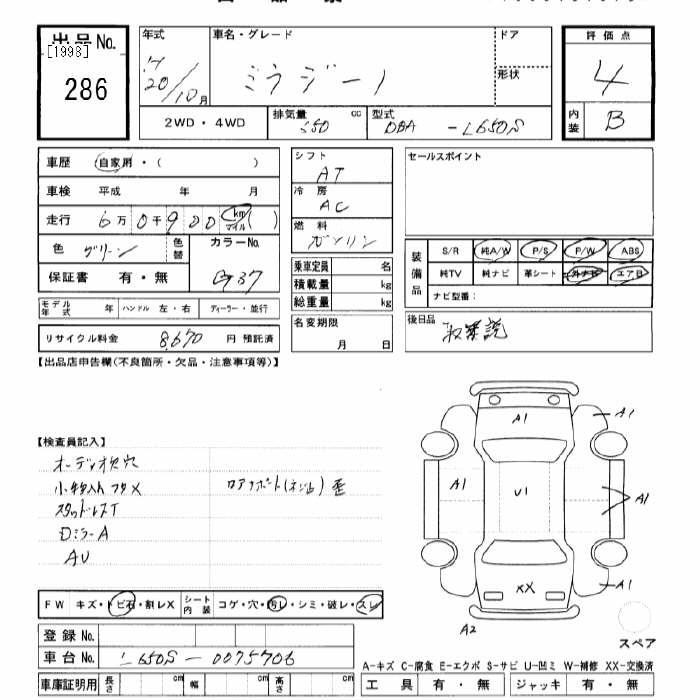 出品No.
[1993]
286
年式
20/10月
車名・グレード
ミラジーノ
ドア
形状
評価点
4
内装
B
2WD・4WD
排気量 cc
型式
DBA-L650S
車歴 自家用・( )
車検 平成 年 月
走行 6万0千900km マイル( )
色 グリーン
色替
カラーNo.
G37
保証書 有・無
モデル年式 年 ハンドル 左・右 ディーラー・並行
リサイクル料金 8,670 円 預託済
シフト
AT
冷房
AC
燃料
ガソリン
乗車定員 名
積載量 kg
総重量 kg
名変期限
月 日
セールスポイント
装備品
S/R 純A/W P/S P/W ABS
純TV 純ナビ 革シート 外ナビ エアB
ナビ型番:
後日品
取業説
【出品店申告欄(不良箇所・欠品・注意事項等)】
【検査員記入】
オーディオ欠穴
小物入れフタX
スタッドレスT
DミラーA
AU
ロアサポート(ネジ山)歪
A1
A1
A1
U1
A1
XX
A1
A2
スペア
FW キズ・トビ石・割レX
シート内装 コゲ・穴・汚レ・シミ・破レ・スレ
登録No.
車台No. L650S-0075706
車庫証明用 長さ cm 幅 cm 高さ cm
A-キズ C-腐食 E-エクボ S-サビ U-凹ミ W-補修 XX-交換済
工具 有・無 ジャッキ 有・無